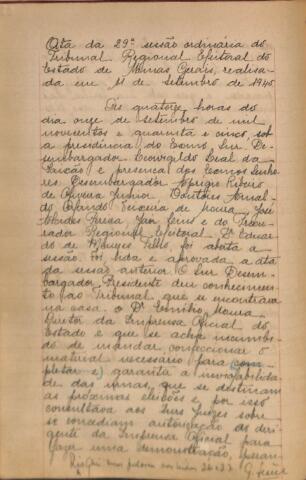 Ata da 29ª sessão ordinária do
Tribunal Regional Eleitoral do
Estado de Minas Gerais, realisa-
da em 11 de setembro de 1945
Ás quatorze horas do
dia onze de setembro de mil
novecentos e quarenta e cinco, sob
a presidência do Exmo. Snr. De-
sembargador Leovigildo Leal da
Paixão e presença dos Exmos Senho-
res Desembargador Aprigio Ribeiro
de Oliveira Junior, Doutores Arnal-
do Moura, José
e do Procu-
rador Regional Eleitoral, Dr. Edua
do de Menezes Filho, foi aberta a
sessão. Foi lida e aprovada a ata
da sessão anterior. O Snr Desem-
bargador Presidente deu conhecimen-
to ao Tribunal que se encontrava
na casa o Dr. Moura
Diretor da Imprensa Oficial do
Estado e que se acha incumbi-
do de mandar confeccionar o
material necessario para com-
pletar e garantir a inviolabilida-
de das urnas, que se destinam
as próximas eleições e por isso
consultava aos Snrs Juizes sobre
se concediam autorização ao diri-
gente da Imprensa Oficial para
fazer uma demonstração,